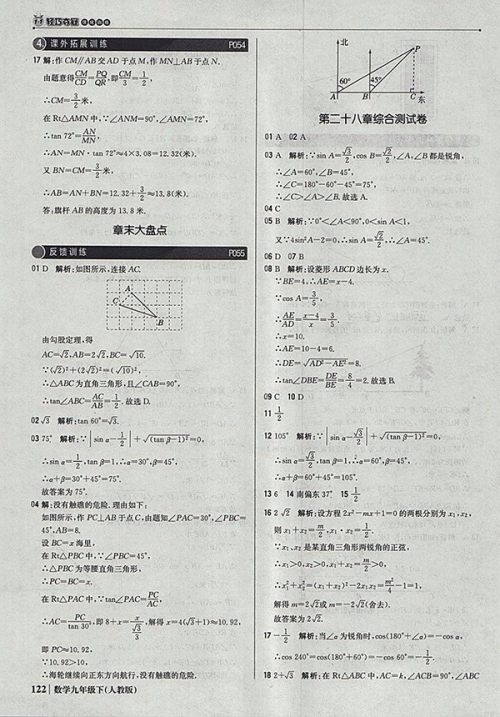 轻巧夺冠
4 课外拓展训练 P054
17 解:作CM∥AB交AD于点M,作MN⊥AB于点N.
由题意得CM/CD=PQ/QR,即CM/3=1/2,
∴CM=3/2米,
在Rt△AMN中,∵∠ANM=90°,∠AMN=72°,
∴tan 72°=AN/MN,
∴AN=MN·tan 72°≈4×3.08=12.32(米).
又BN=CM=3/2米,
∴AB=AN+BN=12.32+3/2≈13.8(米).
答:旗杆AB的高度为13.8米.
章末大盘点
反馈训练 P055
01 D 解析:如图所示,连接AC.
A
C
B
由勾股定理,得
AC=√2,AB=2√2,BC=√10,
∵(√2)²+(2√2)²=(√10)²,
∴△ABC为直角三角形,且∠CAB=90°,
∴tan∠ABC=AC/AB=1/2.故选D.
02 √3 解析:tan 60°=√3.
03 75° 解析:∵|sin α-1/2|+√(tan β-1)²=0,
∴sin α=1/2,tan β=1,∴α=30°,β=45°,
∴α+β=30°+45°=75°.
故答案为75°.
04 解:没有触礁的危险.理由如下:
如图所示,作PC⊥AB于点C,由题知∠PAC=30°,∠PBC=
45°,AB=8.
设BC=x海里.
在Rt△PBC中,∵∠PBC=45°,
∴△PBC为等腰直角三角形,
∴PC=BC=x.
在Rt△PAC中,∵tan∠PAC=PC/AC,
∴AC=PC/tan 30°,即8+x=x/(√3/3),解得x=4(√3+1)≈10.92,
即PC≈10.92.
∵10.92>10,
∴海轮继续向正东方向航行,没有触礁的危险.
122 数学九年级下(人教版)
北
P
60°
45°
A B C 东
第二十八章综合测试卷
01 A 02 A
03 A 解析:∵sin A=√3/2,cos B=√2/2,∠A,∠B都是锐角,
∴∠A=60°,∠B=45°,
∴∠C=180°-60°-45°=75°,
∴∠C>∠A>∠B.故选A.
04 C
05 B 解析:∵0°<∠A<90°,0<sin A<1,
又∵4sin²A-2=0,∴sin A=√2/2,∴∠A=45°.
06 D 07 B
08 B 解析:设菱形ABCD边长为x.
∵BE=4,∴AE=x-4.
∵cos A=3/5,
∴AE/AD=(x-4)/x=3/5.
∴x=10.
∴AE=10-4=6.
∴DE=√(AD²-AE²)=8.
∴tan∠DBE=DE/BE=8/4=2.故选B.
09 C 10 D
11 1/2
12 105° 解析:∵|sin α-√3/2|+√(tan β-1)²=0,
∴sin α=√3/2,tan β=1,∴α=60°,β=45°,
∴α+β=60°+45°=105°.
13 6 14 南偏东37° 15 1/2
16 2√2 解析:设方程2x²-mx+1=0的两根分别为x₁,x₂,
则x₁+x₂=m/2,x₁·x₂=1/2.
∵x₁,x₂是某直角三角形两锐角的正弦,
∴x₁>0,x₂>0,x₁+x₂=m/2>0,
∴x₁²+x₂²=(x₁+x₂)²-2x₁x₂=m²/4-1=1,
解得m=2√2或m=-2√2(舍去).
故答案为2√2.
17 -1/2 解析:当∠α为锐角时,cos(180°+∠α)=-cos α,
∴cos 240°=cos(180°+60°)=-cos 60°=-1/2.
18 2+√3 解析:在Rt△ABC中,AC=k,∠ACB=90°,∠ABC